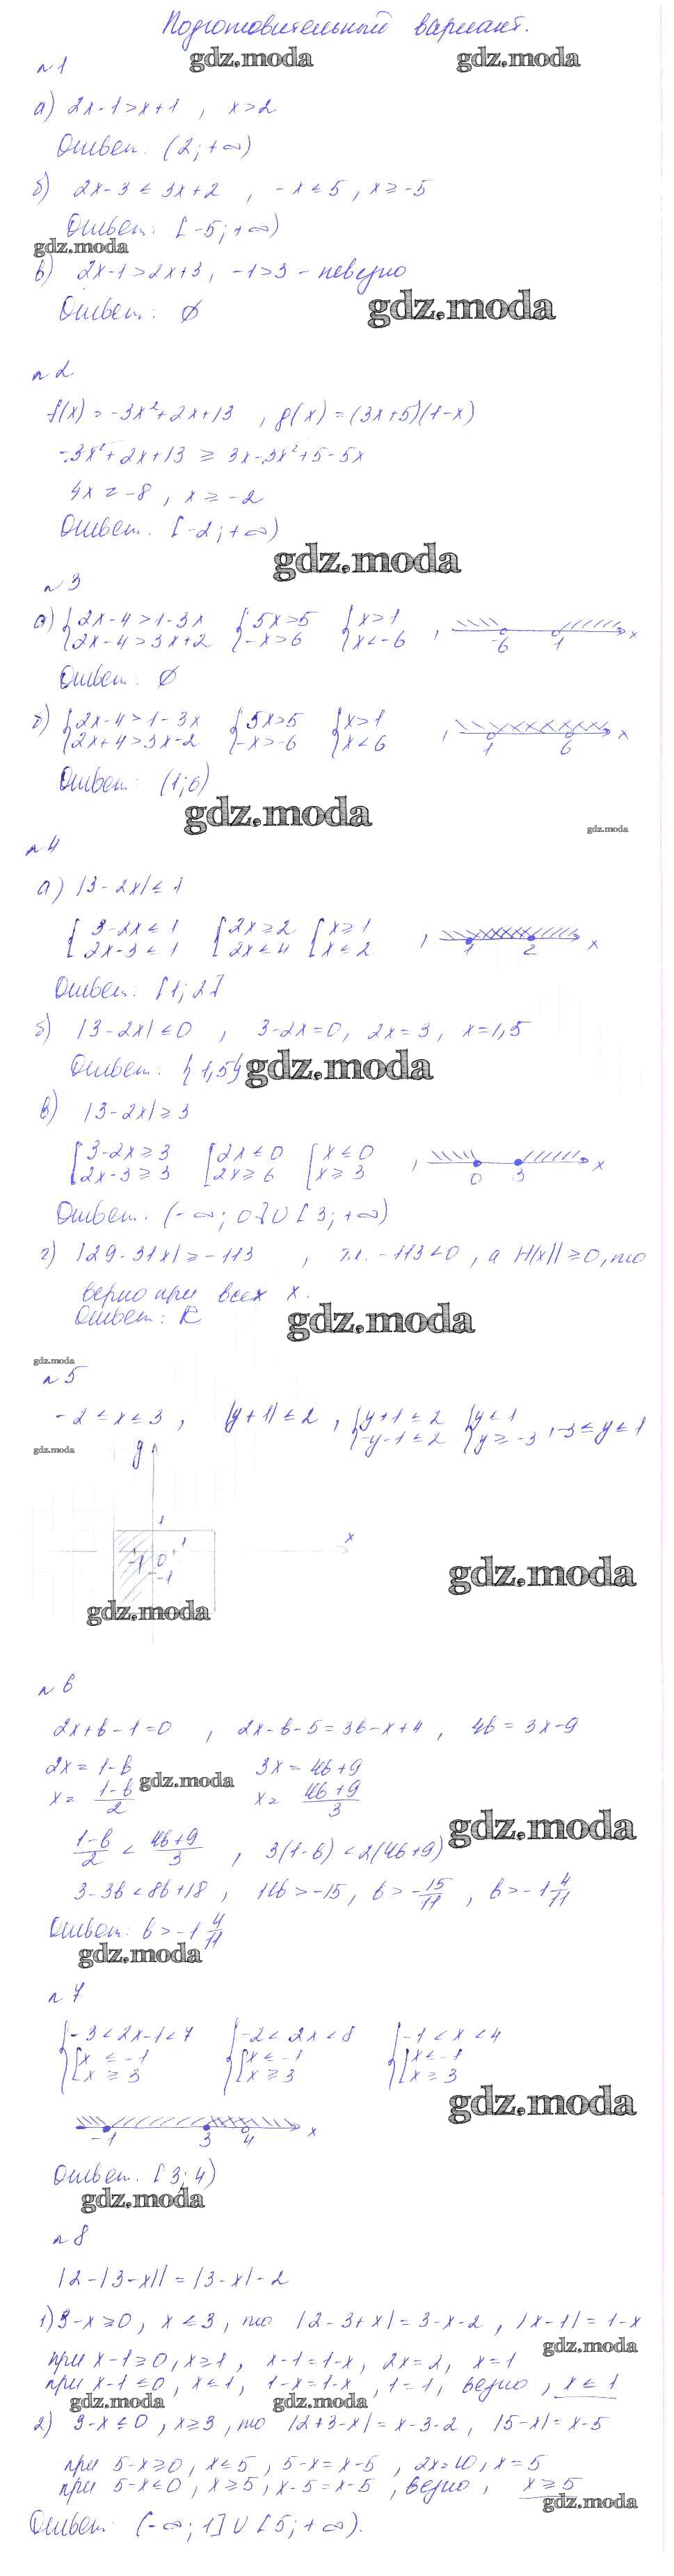 Подготовительный вариант.
gdz.moda gdz.moda
n 1
а) 2x-1>x+1 , x>2
Ответ: (2;+∞)
б) 2x-3≤3x+2 , -x≤5, x≥-5
Ответ: [-5;+∞)
gdz.moda
в) 2x-1>2x+3, -1>3 - неверно
gdz.moda
Ответ: ∅
n 2
f(x)=-3x²+2x+13 , g(x)=(3x+5)(1-x)
-3x²+2x+13 ≥ 3x-3x²+5-5x
4x≥-8, x≥-2
Ответ. [-2;+∞)
gdz.moda
n 3
а) {2x-4>1-3x {5x>5 {x>1
{2x-4>3x+2 {-x>6 {x<-6 , -6 1 x
Ответ: ∅
б) {2x-4>1-3x {5x>5 {x>1
{2x+4>3x-2 {-x>-6 {x<6 , 1 6 x
Ответ: (1;6)
gdz.moda
gdz.moda
n 4
а) |3-2x|≤1
{3-2x≤1 {2x≥2 {x≥1
{2x-3≤1 {2x≤4 {x≤2 , 1 2 x
Ответ: [1;2]
б) |3-2x|≤0 , 3-2x=0, 2x=3, x=1,5
Ответ: {1,5} gdz.moda
в) |3-2x|≥3
[3-2x≥3 [2x≤0 [x≤0
[2x-3≥3 [2x≥6 [x≥3 , 0 3 x
Ответ. (-∞;0]∪[3;+∞)
г) |29-31x|≥-113 , т.к. -113<0, а |f(x)|≥0, то
верно при всех x.
Ответ: R
gdz.moda
gdz.moda
n 5
-2≤x≤3, |y+1|≤2 , {y+1≤2 {y≤1
{-y-1≤2 {y≥-3 , -3≤y≤1
gdz.moda
y
1
x
-1 0 1
-1
gdz.moda
gdz.moda
n 6
2x+b-1=0 , 2x-b-5=3b-x+4 , 4b=3x-9
2x=1-b 3x=4b+9
x=(1-b)/2 gdz.moda x=(4b+9)/3
gdz.moda
(1-b)/2 < (4b+9)/3 , 3(1-b)<2(4b+9)
3-3b<8b+18, 11b>-15, b>-15/11 , b>-1 4/11
Ответ: b>-1 4/11
gdz.moda
n 7
{-3<2x-1<7 {-2<2x<8 {-1<x<4
{[x≤-1 {[x≤-1 {[x≤-1
[x≥3 [x≥3 [x≥3
gdz.moda
-1 3 4 x
Ответ. [3;4)
gdz.moda
n 8
|2-|3-x||=|3-x|-2
1) 3-x≥0, x≤3, то |2-3+x|=3-x-2, |x-1|=1-x
gdz.moda
при x-1≥0, x≥1, x-1=1-x, 2x=2, x=1
при x-1≤0, x≤1, 1-x=1-x, 1=1, верно, x≤1
gdz.moda gdz.moda
2) 3-x≤0, x≥3, то |2+3-x|=x-3-2, |5-x|=x-5
при 5-x≥0, x≤5, 5-x=x-5, 2x=10, x=5
при 5-x≤0, x≥5, x-5=x-5, верно, x≥5
gdz.moda
Ответ: (-∞;1]∪[5;+∞).